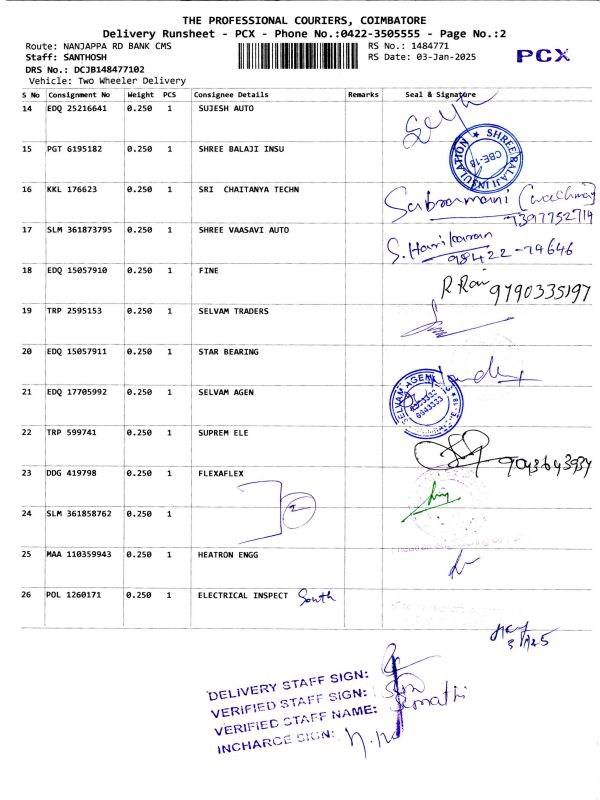 THE PROFESSIONAL COURIERS, COIMBATORE
Delivery Runsheet - PCX - Phone No.:0422-3505555 - Page No.:2
Route: NANJAPPA RD BANK CMS RS No.: 1484771
Staff: SANTHOSH RS Date: 03-Jan-2025 PCX
DRS No.: DCJB148477102
Vehicle: Two Wheeler Delivery
S No Consignment No Weight PCS Consignee Details Remarks Seal & Signature
14 EDQ 25216641 0.250 1 SUJESH AUTO
15 PGT 6195182 0.250 1 SHREE BALAJI INSU
SHREE BALAJI INSULATION CBE-18
16 KKL 176623 0.250 1 SRI CHAITANYA TECHN
Subramani (watchman)
7397752714
17 SLM 361873795 0.250 1 SHREE VAASAVI AUTO
S. Hariharan
98422-74646
18 EDQ 15057910 0.250 1 FINE
R Ravi 9790335197
19 TRP 2595153 0.250 1 SELVAM TRADERS
20 EDQ 15057911 0.250 1 STAR BEARING
21 EDQ 17705992 0.250 1 SELVAM AGEN
SELVAM AGEN
22 TRP 599741 0.250 1 SUPREM ELE
9043643934
23 DDG 419798 0.250 1 FLEXAFLEX
2
24 SLM 361858762 0.250 1
25 MAA 110359943 0.250 1 HEATRON ENGG
26 POL 1260171 0.250 1 ELECTRICAL INSPECT South
3/1/25
DELIVERY STAFF SIGN:
VERIFIED STAFF SIGN:
VERIFIED STAFF NAME:
INCHARGE SIGN: